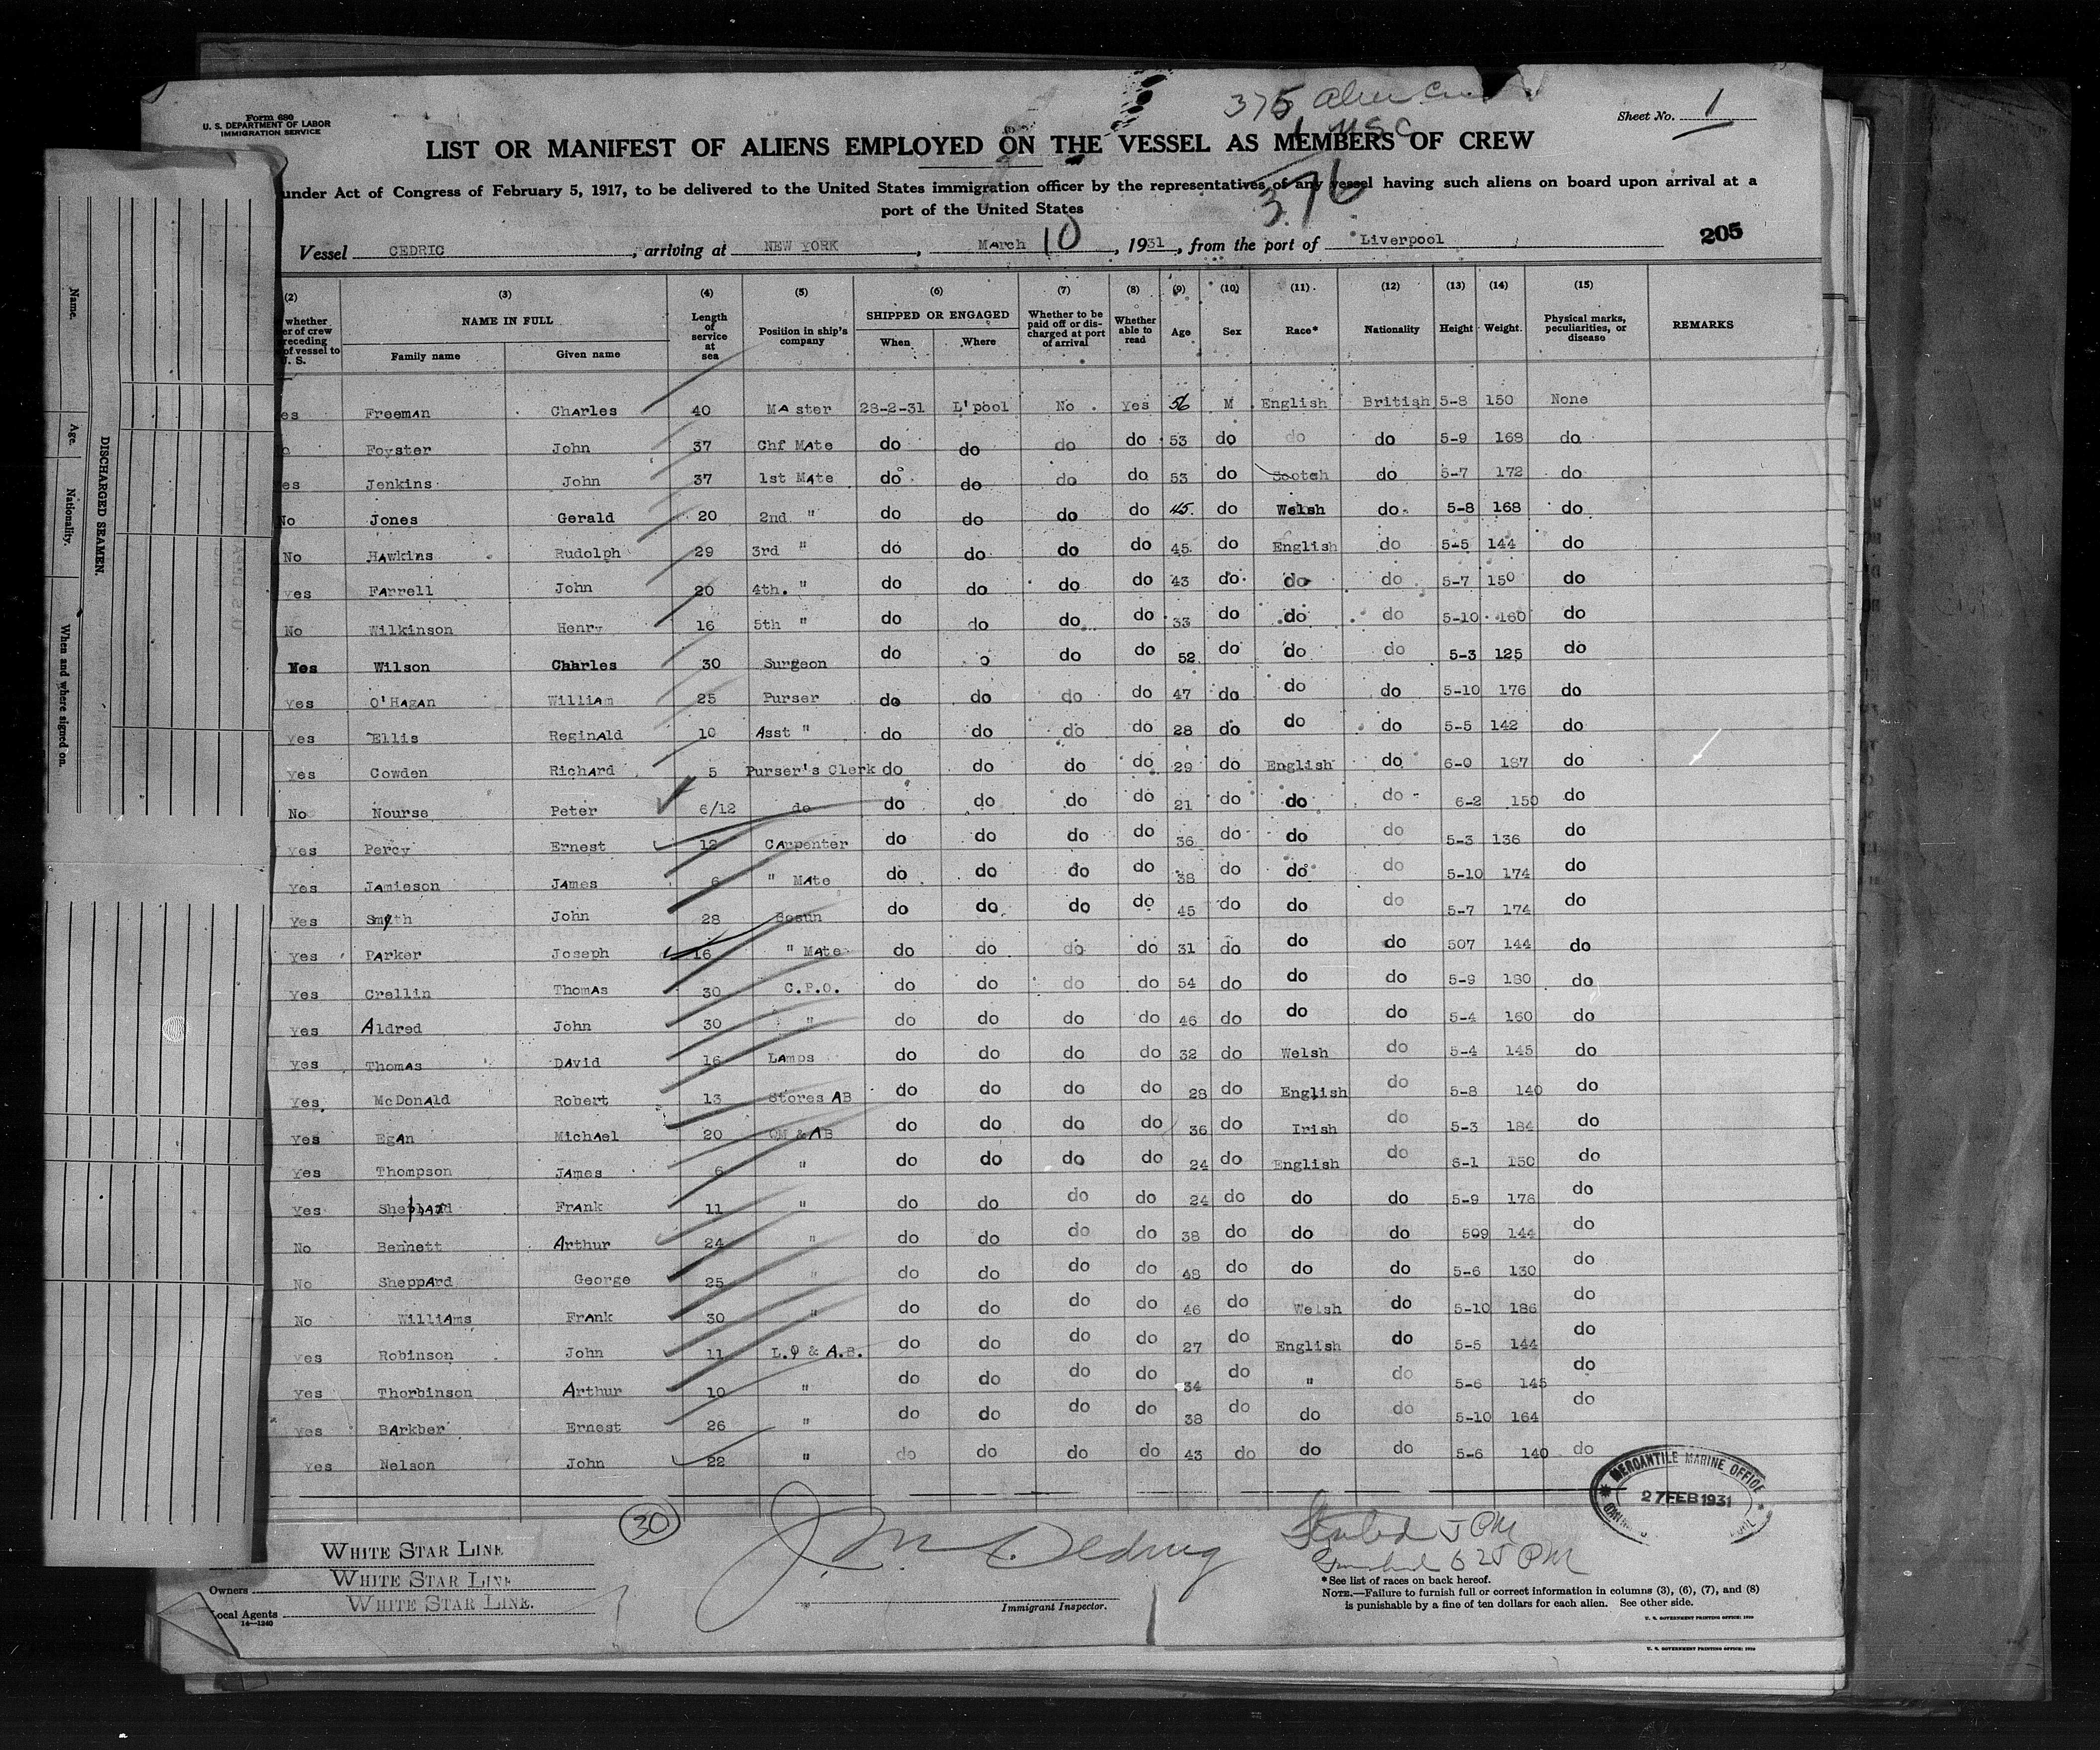 375 Alien Crew
1 USC
376
Form 680
U. S. DEPARTMENT OF LABOR
IMMIGRATION SERVICE
Sheet No. 1
LIST OR MANIFEST OF ALIENS EMPLOYED ON THE VESSEL AS MEMBERS OF CREW
under Act of Congress of February 5, 1917, to be delivered to the United States immigration officer by the representatives of any vessel having such aliens on board upon arrival at a
port of the United States
Vessel CEDRIC, arriving at NEW YORK, March 10, 1931, from the port of Liverpool 205
(2) (3) (4) (5) (6) (7) (8) (9) (10) (11) (12) (13) (14) (15)
whether er of crew receding of vessel to U. S. NAME IN FULL Family name Given name Length of service at sea Position in ship's company SHIPPED OR ENGAGED When Where Whether to be paid off or discharged at port of arrival Whether able to read Age Sex Race* Nationality Height Weight. Physical marks, peculiarities, or disease REMARKS
es Freeman Charles 40 Master 28-2-31 L'pool No Yes 56 M English British 5-8 150 None
o Foyster John 37 Chf Mate do do do do 53 do do do 5-9 168 do
es Jenkins John 37 1st Mate do do do do 53 do Scotch do 5-7 172 do
No Jones Gerald 20 2nd " do do do do 45. do Welsh do 5-8 168 do
No Hawkins Rudolph 29 3rd " do do do do 45 do English do 5-5 144 do
Yes Farrell John 20 4th. " do do do do 43 do do do 5-7 150 do
No Wilkinson Henry 16 5th " do do do do 33 do do do 5-10 160 do
Yes Wilson Charles 30 Surgeon do o do do 52 do do do 5-3 125 do
Yes O'Hagan William 25 Purser do do do do 47 do do do 5-10 176 do
Yes Ellis Reginald 10 Asst " do do do do 28 do do do 5-5 142 do
Yes Cowden Richard 5 Purser's Clerk do do do do 29 do English do 6-0 187 do
No Nourse Peter 6/12 do do do do do 21 do do do 6-2 150 do
Yes Percy Ernest 12 Carpenter do do do do 36 do do do 5-3 136 do
Yes Jamieson James 6 " Mate do do do do 38 do do do 5-10 174 do
Yes Smyth John 28 Bosun do do do do 45 do do do 5-7 174 do
Yes Parker Joseph 16 " Mate do do do do 31 do do do 507 144 do
Yes Crellin Thomas 30 C.P.O. do do do do 54 do do do 5-9 180 do
Yes Aldred John 30 " do do do do 46 do do do 5-4 160 do
Yes Thomas David 16 Lamps do do do do 32 do Welsh do 5-4 145 do
Yes McDonald Robert 13 Stores AB do do do do 28 do English do 5-8 140 do
Yes Egan Michael 20 QM & AB do do do do 36 do Irish do 5-3 184 do
Yes Thompson James 6 " do do do do 24 do English do 6-1 150 do
Yes Shephard Frank 11 " do do do do 24 do do do 5-9 178 do
No Bennett Arthur 24 " do do do do 38 do do do 509 144 do
No Sheppard George 25 " do do do do 48 do do do 5-6 130 do
No Williams Frank 30 " do do do do 46 do Welsh do 5-10 186 do
Yes Robinson John 11 L.O & A.B. do do do do 27 do English do 5-5 144 do
Yes Thorbinson Arthur 10 " do do do do 34 do " do 5-6 145 do
Yes Barkber Ernest 26 " do do do do 38 do do do 5-10 164 do
Yes Nelson John 22 " do do do do 43 do do do 5-6 140 do
MERCANTILE MARINE OFFICE
27 FEB 1931
30
Started 5 PM
Finished 6 25 PM
WHITE STAR LINE
Owners WHITE STAR LINE
Local Agents WHITE STAR LINE.
14—1240
Immigrant Inspector.
*See list of races on back hereof.
NOTE.—Failure to furnish full or correct information in columns (3), (6), (7), and (8)
is punishable by a fine of ten dollars for each alien. See other side.
U. S. GOVERNMENT PRINTING OFFICE: 1930
U. S. GOVERNMENT PRINTING OFFICE: 1930
DISCHARGED SEAMEN.
Name.
Age.
Nationality.
When and where signed on.